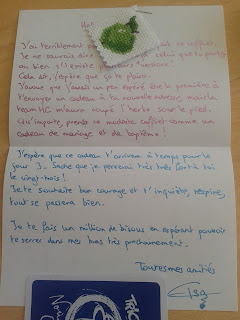 J'ai terriblement
Je ne saurais dire
ou bien s'il existe
Cela dit, j'espère que ça te plaira.
J'avoue que j'avais un peu espéré être la première à
t'envoyer un cadeau à ta nouvelle adresse, mais la
team HC m'a coupé l'herbe sous le pied.
Qu'importe, prends ce modeste coffret comme un
cadeau de mariage et de baptême !
J'espère que ce cadeau t'arrivera à temps pour le
jour J. Sache que je penserai très très fort à toi
le vingt-trois !
Je te souhaite bon courage et t'inquiète, respire,
tout se passera bien.
Je te fais un million de bisous en espérant pouvoir
te serrer dans mes bras très prochainement.
Toutes mes amitiés